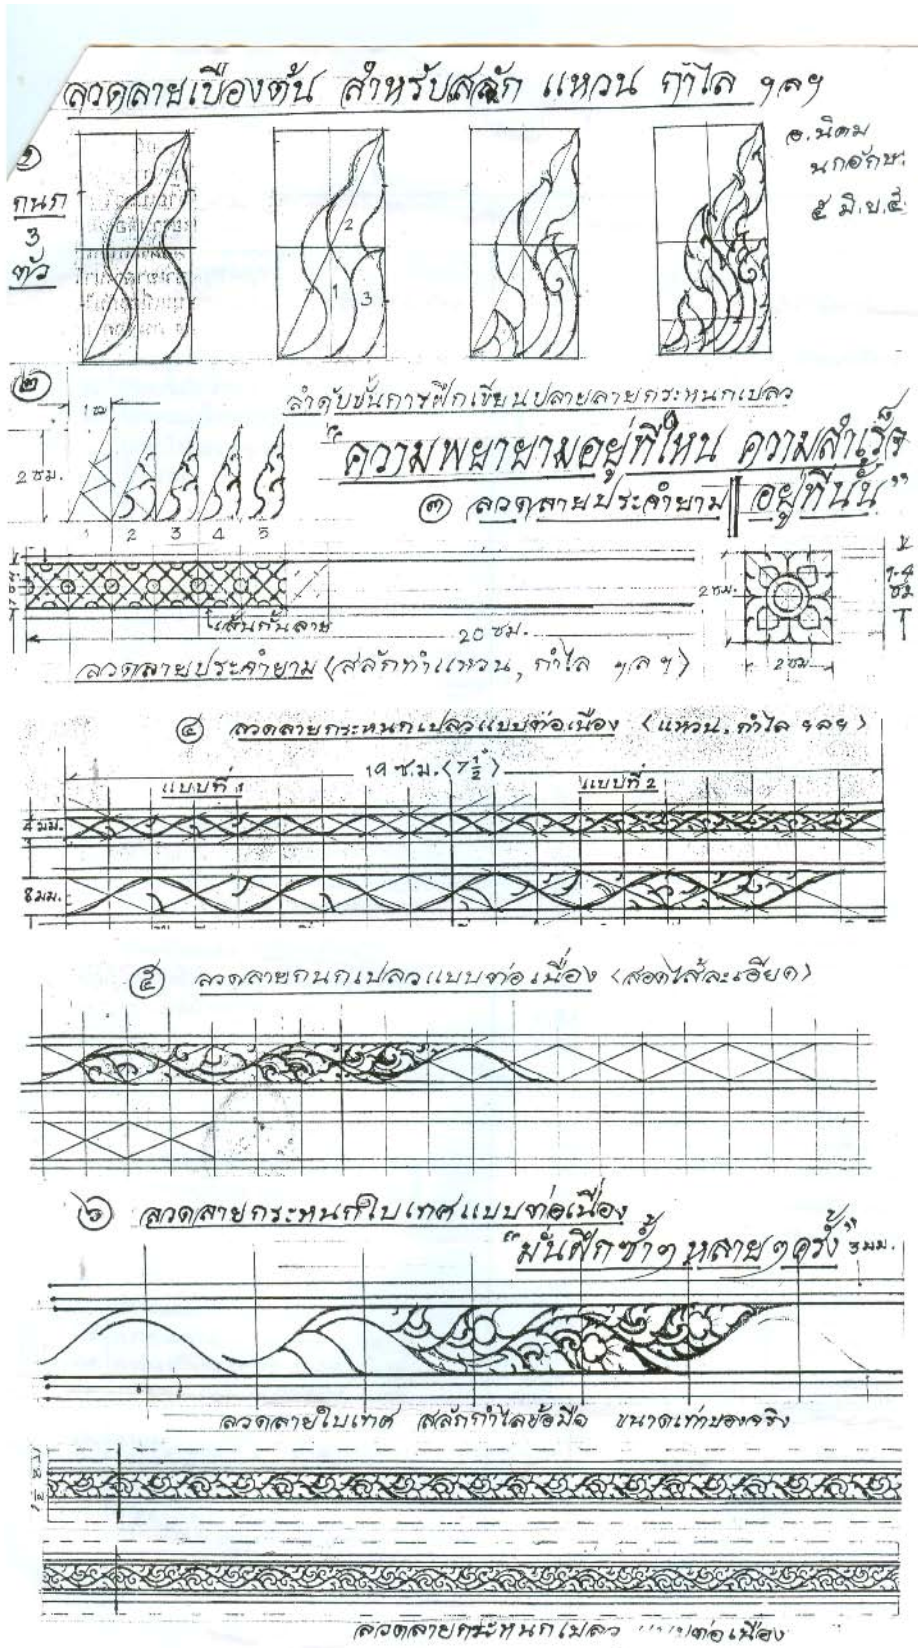 ลวดลายเบื้องต้น สำหรับสลัก แหวน กำไล ฯลฯ
อ.นิคม
นกอักษร
๕ มิ.ย.
๑
กนก
3
ตัว
2
1 3
๒
1 ซม
ลำดับขั้นการฝึกเขียนปลายลายกระหนกเปลว
"ความพยายามอยู่ที่ไหน ความสำเร็จ
อยู่ที่นั้น"
2 ซม.
๓ ลวดลายประจำยาม
1 2 3 4 5
เส้นกั้นลาย
20 ซม.
2 ซม.
2 ซม
ซม
ลวดลายประจำยาม (สลักทำแหวน, กำไล ฯลฯ)
๔ ลวดลายกระหนกเปลวแบบต่อเนื่อง (แหวน, กำไล ฯลฯ)
19 ซ.ม. (7 1/2")
แบบที่ 1 แบบที่ 2
4 มม.
8 มม.
๕ ลวดลายกนกเปลวแบบต่อเนื่อง (สอดไส้ละเอียด)
๖ ลวดลายกระหนกใบเทศแบบต่อเนื่อง
"มั่นฝึกซ้ำๆ หลายๆครั้ง"
3 มม.
ลวดลายใบเทศ สลักกำไลข้อมือ ขนาดเท่าของจริง
1/2 ซ.ม
ลวดลายกระหนกเปลว แบบต่อเนื่อง